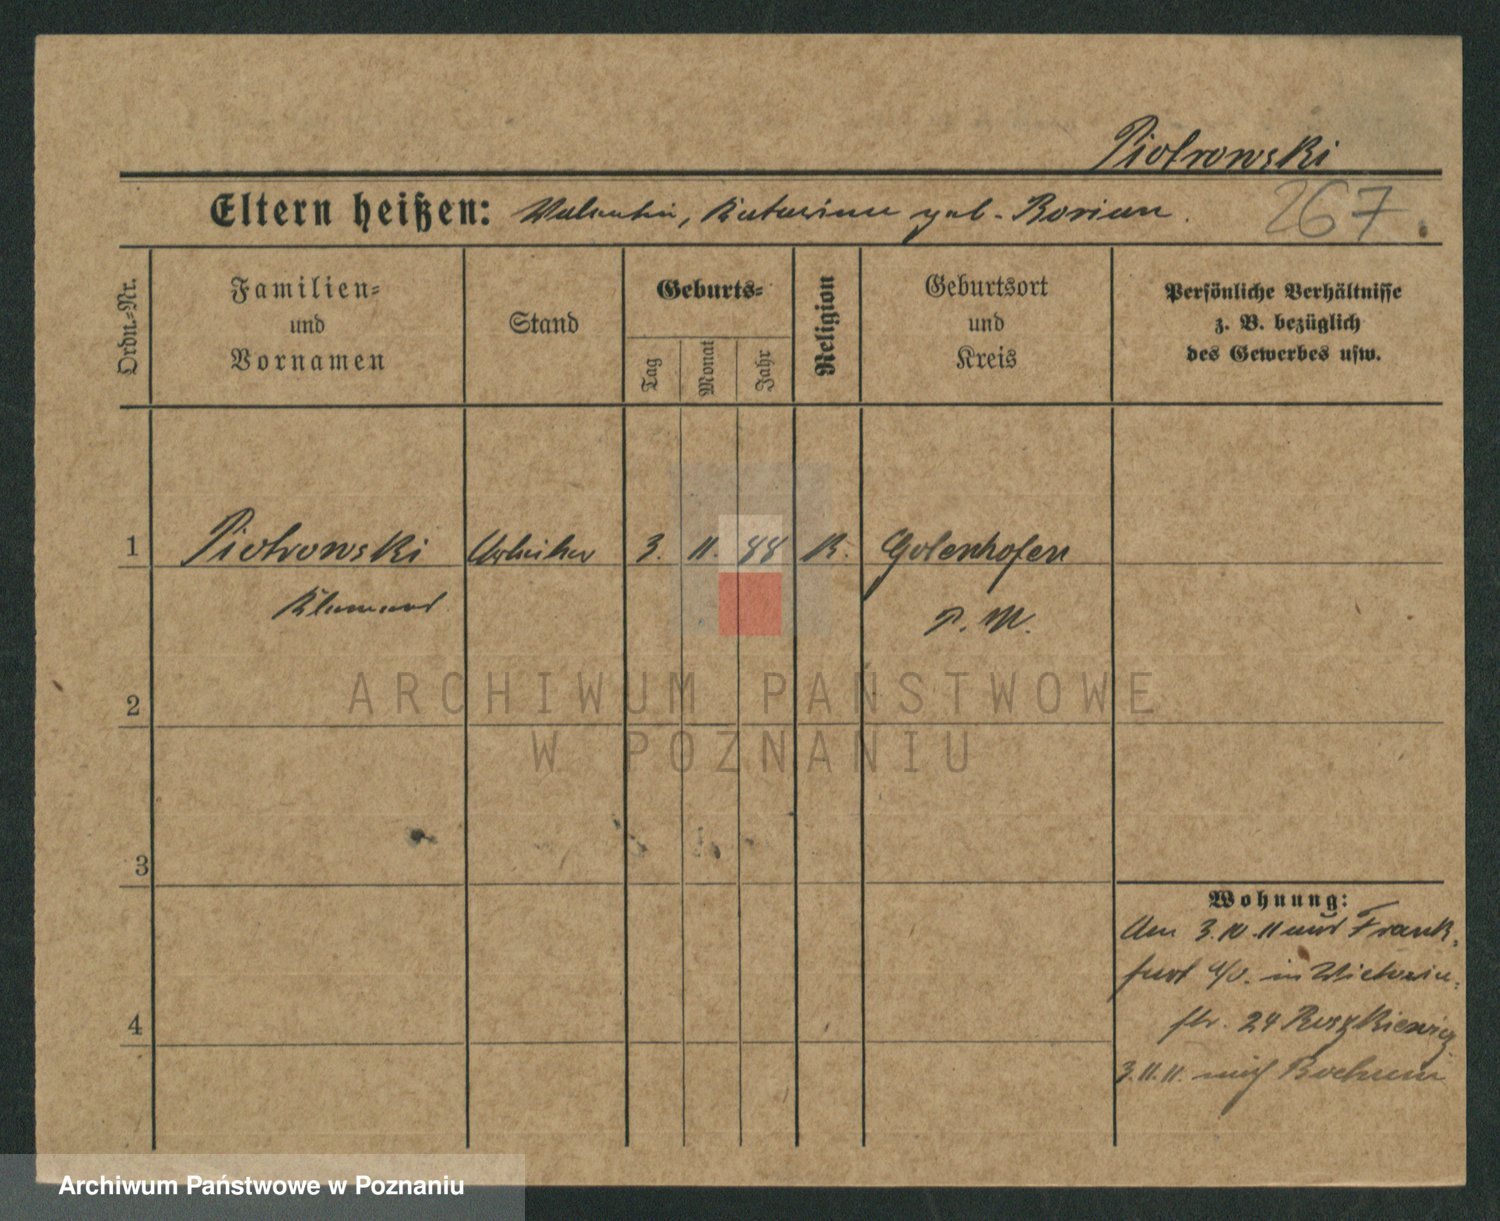 Piotrowski
Eltern heißen: Valentin, Katarina geb. Borian.
267.
Ordn.-Nr.
Familien-
und
Vornamen
Stand
Geburts-
Tag
Monat
Jahr
Religion
Geburtsort
und
Kreis
Persönliche Verhältnisse
z. B. bezüglich
des Gewerbes usw.
1 Piotrowski Arbeiter 3. 11. 88 K. Golenhofen
P. W.
2
ARCHIWUM PAŃSTWOWE
W POZNANIU
3
4
Wohnung:
Am 3.10.11 aus Frank-
furt a/O. in Victoria-
str. 24 Ruszkiewicz
3.11.11. nach Bochum
Archiwum Państwowe w Poznaniu